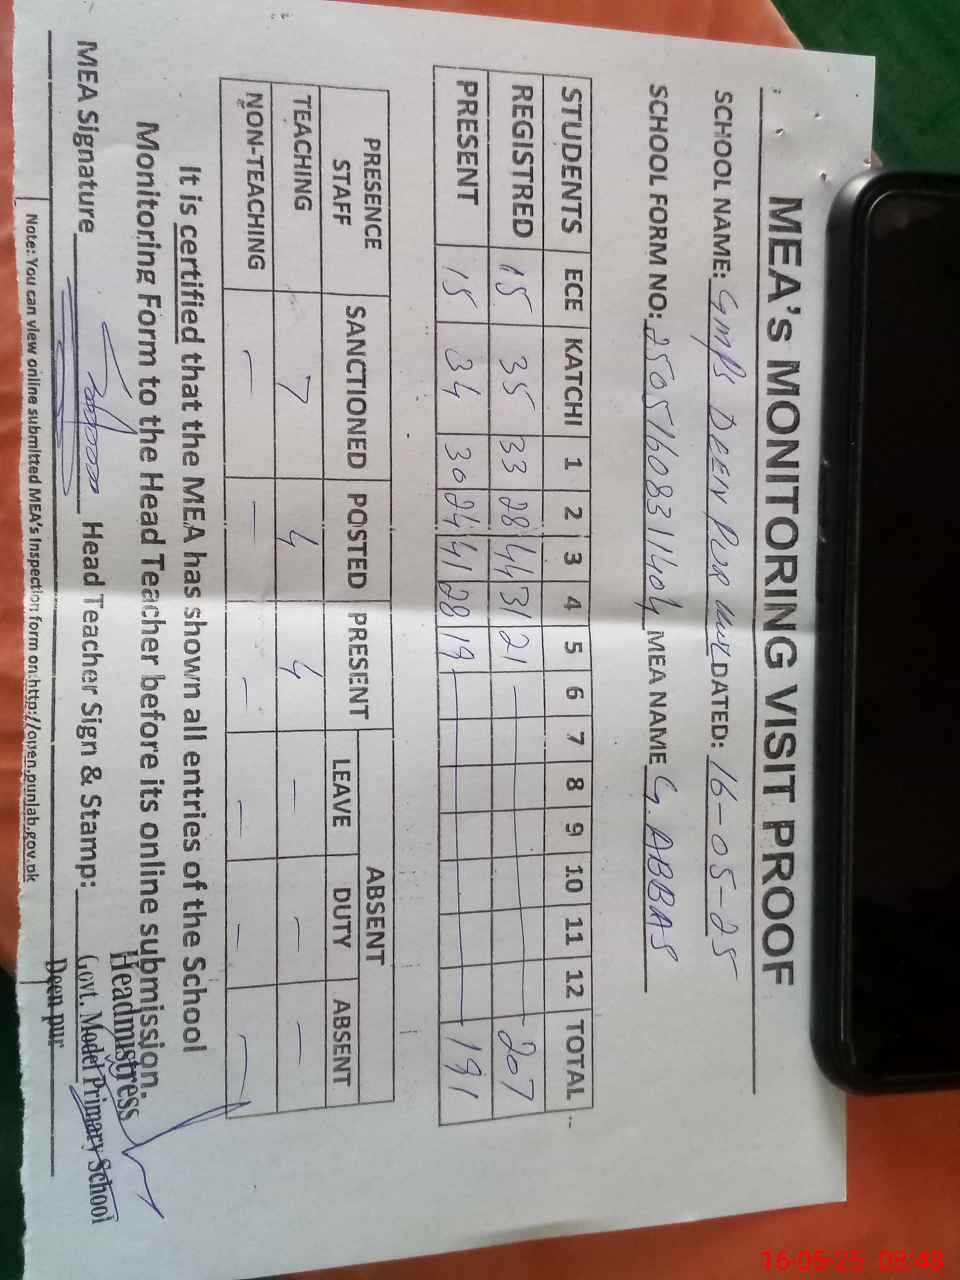 MEA's MONITORING VISIT PROOF
SCHOOL NAME: GMPS DEEN PUR DATED: 16-05-25
SCHOOL FORM NO: 25051608311404 MEA NAME G. ABBAS
STUDENTS ECE KATCHI 1 2 3 4 5 6 7 8 9 10 11 12 TOTAL
REGISTRED 15 35 33 28 44 31 21 — 207
PRESENT 15 34 30 24 41 28 19 — 191
PRESENCE STAFF SANCTIONED POSTED PRESENT ABSENT
LEAVE DUTY ABSENT
TEACHING 7 4 4 — — —
NON-TEACHING — — — — — —
It is certified that the MEA has shown all entries of the School
Monitoring Form to the Head Teacher before its online submission.
MEA Signature Head Teacher Sign & Stamp:
Headmistress
Govt. Model Primary School
Deen pur
Note: You can view online submitted MEA's Inspection form on:http://open.punlab.gov.pk
16-05-25 08:48